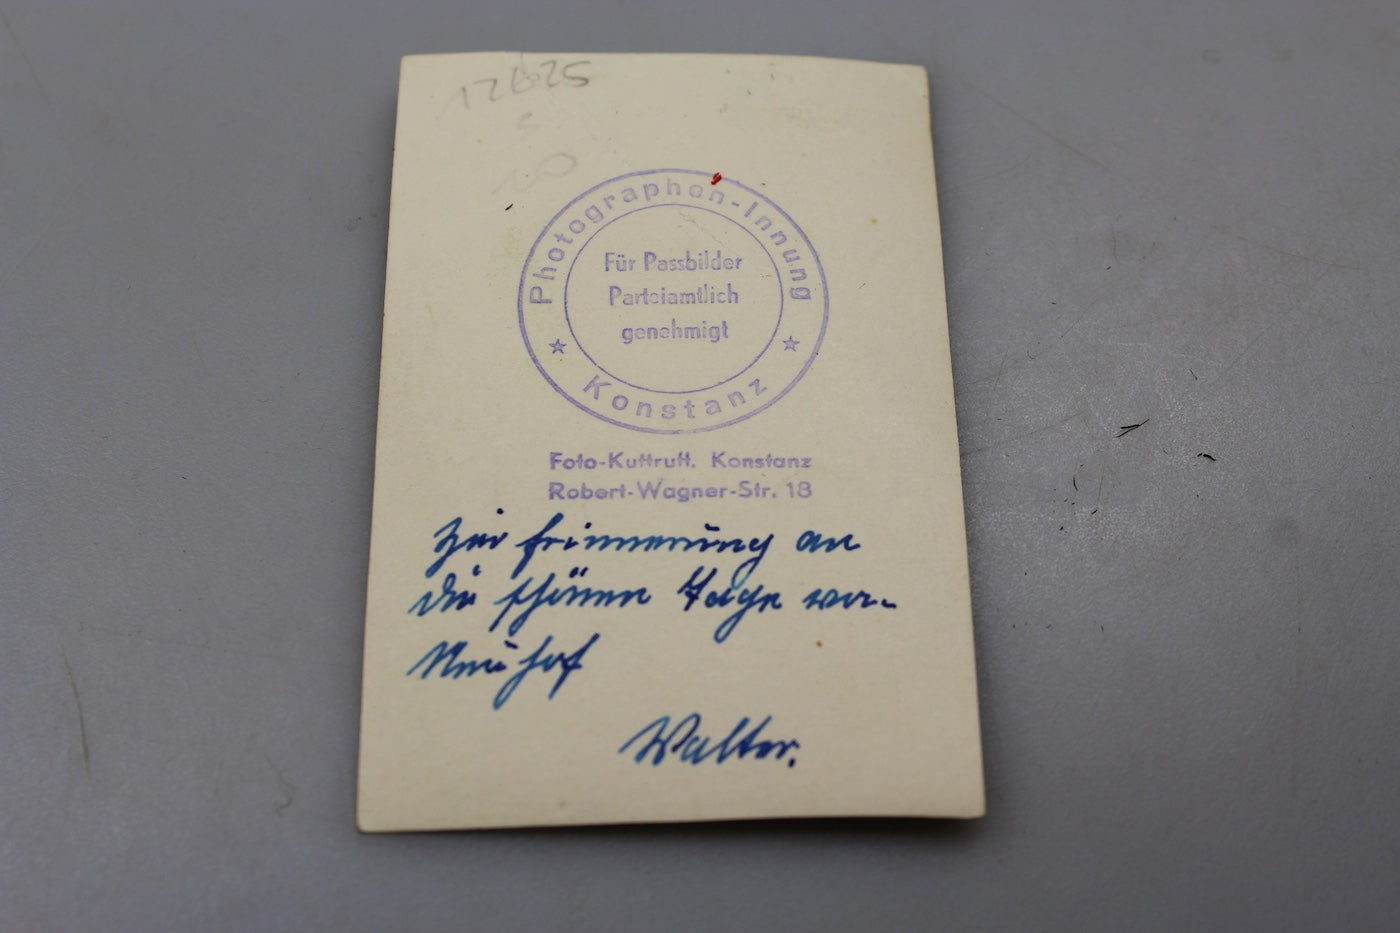 17625
Photographen-Innung
Für Passbilder
Parteiamtlich
genehmigt
Konstanz
Foto-Kuttruff, Konstanz
Robert-Wagner-Str. 18
Zur Erinnerung an
die schönen Tage
Neuhof
Walter.